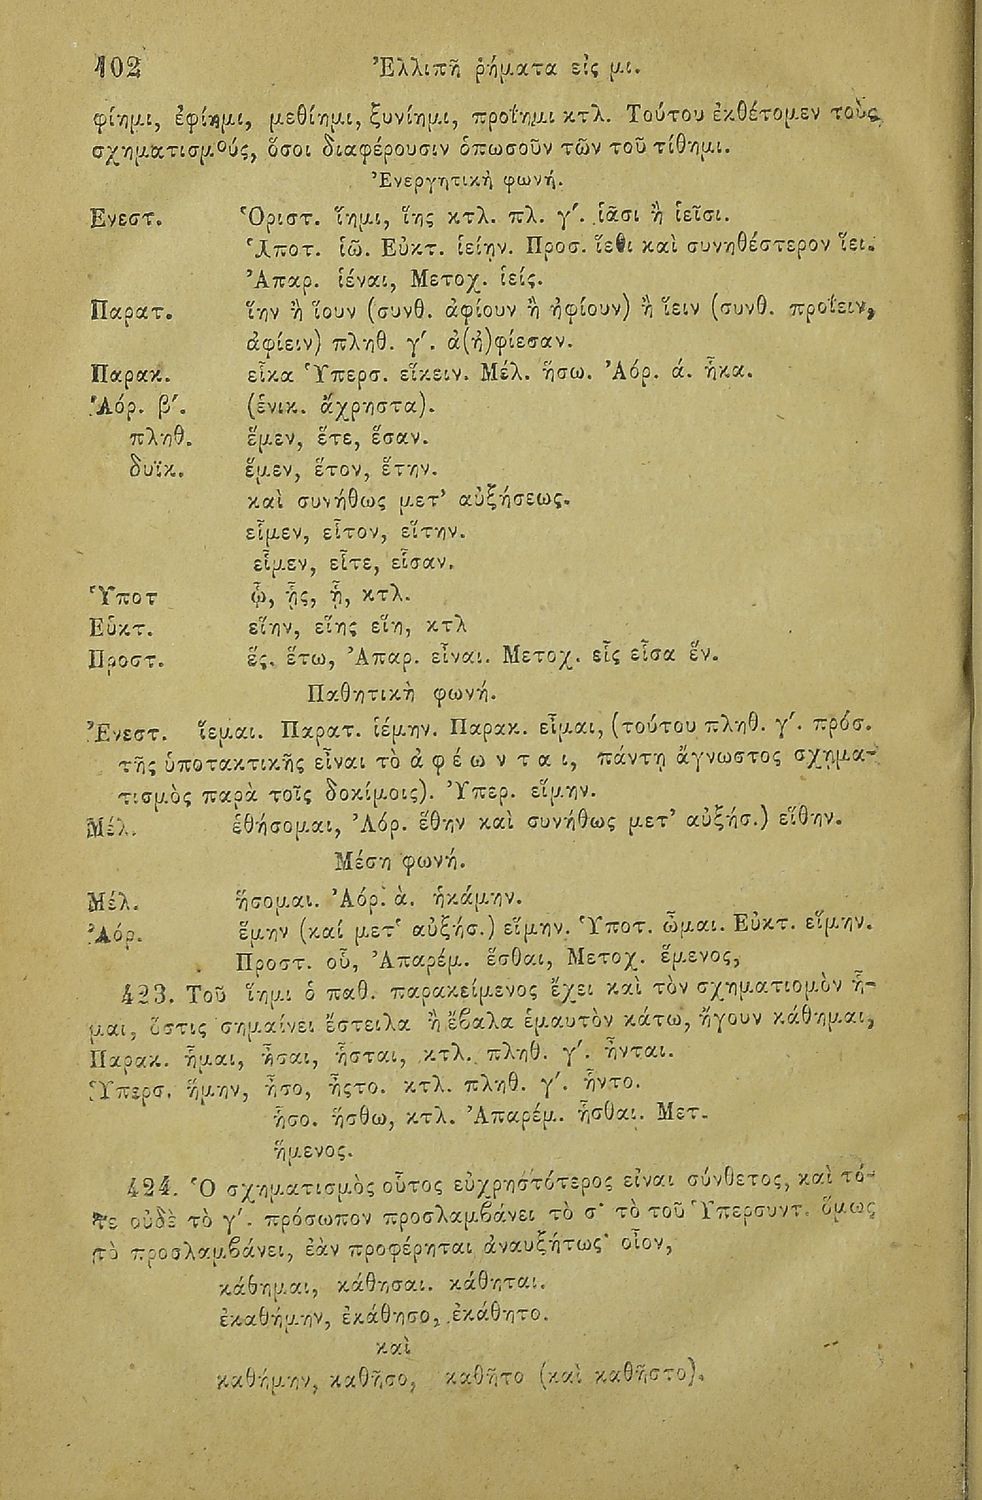 102 Ἐλλιπῆ ῥήματα εἰς μι.
φίημι, ἐφίημι, μεθίημι, ξυνίημι, προΐημι κτλ. Τούτου ἐκθέτομεν τοὺς
σχηματισμούς, ὅσοι διαφέρουσιν ὁπωσοῦν τῶν τοῦ τίθημι.
Ἐνεργητικὴ φωνή.
Ενεστ. Ὁριστ. ἵημι, ἵης κτλ. πλ. γ΄. ἱᾶσι ἢ ἱεῖσι.
Ὑποτ. ἱῶ. Εὐκτ. ἱείην. Προσ. ἵεθι καὶ συνηθέστερον ἵει.
Ἀπαρ. ἱέναι, Μετοχ. ἱείς.
Παρατ. ἵην ἢ ἵουν (συνθ. ἀφίουν ἢ ἠφίουν) ἢ ἵειν (συνθ. προΐειν,
ἀφίειν) πληθ. γ΄. ἀ(ἠ)φίεσαν.
Παρακ. εἷκα Ὑπερσ. εἵκειν. Μέλ. ἥσω. Ἀόρ. ά. ἧκα.
Ἀόρ. β΄. (ἑνικ. ἄχρηστα).
πληθ. ἕμεν, ἕτε, ἕσαν.
δυϊκ. ἕμεν, ἕτον, ἕτην.
καὶ συνήθως μετ' αὐξήσεως.
εἷμεν, εἷτον, εἵτην.
εἷμεν, εἷτε, εἷσαν.
Ὑποτ ᾧ, ᾗς, ᾗ, κτλ.
Εὐκτ. εἵην, εἵης εἵη, κτλ
Προστ. ἕς, ἕτω, Ἀπαρ. εἷναι. Μετοχ. εἷς εἷσα ἕν.
Παθητικὴ φωνή.
Ἐνεστ. ἵεμαι. Παρατ. ἱέμην. Παρακ. εἷμαι, (τούτου πληθ. γ΄. πρόσ.
τῆς ὑποτακτικῆς εἶναι τὸ ἀφέωνται, πάντη ἄγνωστος σχημα-
τισμὸς παρὰ τοῖς δοκίμοις). Ὑπερ. εἵμην.
Μέλ. ἑθήσομαι, Ἀόρ. ἕθην καὶ συνήθως μετ' αὐξήσ.) εἵθην.
Μέση φωνή.
Μέλ. ἥσομαι. Ἀόρ. ὰ. ἡκάμην.
Ἀόρ. ἕμην (καί μετ' αὐξήσ.) εἵμην. Ὑποτ. ὧμαι. Εὐκτ. εἵμην.
Προστ. οὗ, Ἀπαρέμ. ἕσθαι, Μετοχ. ἕμενος,
423. Τοῦ ἵημι ὁ παθ. παρακείμενος ἔχει καὶ τὸν σχηματισμὸν ἧ-
μαι, ὅστις σημαίνει ἔστειλα ἢ ἔβαλα ἐμαυτὸν κάτω, ἤγουν κάθημαι,
Παρακ. ἧμαι, ἧσαι, ἧσται, κτλ. πληθ. γ΄. ἧνται.
Ὑπερσ. ἥμην, ἧσο, ἧστο. κτλ. πληθ. γ΄. ἧντο.
ἧσο. ἥσθω, κτλ. Ἀπαρέμ. ἧσθαι. Μετ.
ἥμενος.
424. Ὁ σχηματισμὸς οὗτος εὐχρηστότερος εἶναι σύνθετος, καὶ τό-
τε οὐδὲ τὸ γ΄. πρόσωπον προσλαμβάνει τὸ σ· τὸ τοῦ Ὑπερσυντ. ὅμως
τὸ προσλαμβάνει, ἐὰν προφέρηται ἀναυξήτως· οἷον,
κάθημαι, κάθησαι. κάθηται.
ἐκαθήμην, ἐκάθησο, ἐκάθητο.
καὶ
καθήμην, καθῆσο, καθῆτο (καὶ καθῆστο).